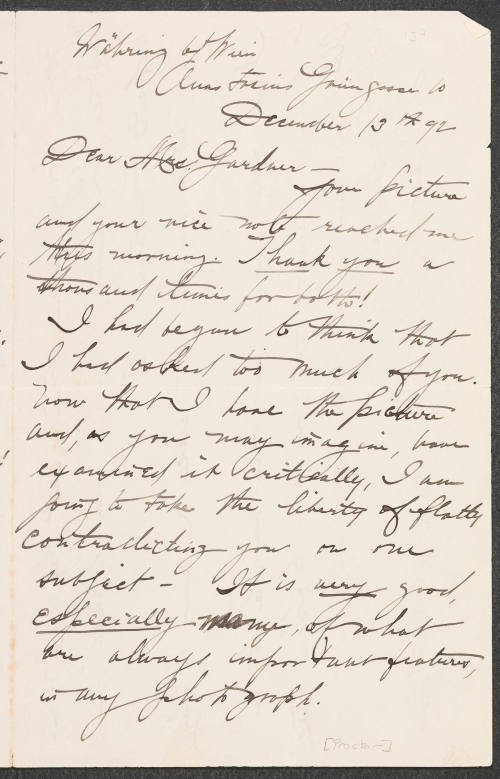 Währing bei Wien
Anastasius Grüngasse 10
December 13th 92
Dear Mrs. Gardner—
Your picture
and your nice note reached me
this morning. Thank you a
thousand times for both!
I had begun to think that
I had asked too much of you.
Now that I have the picture
and, as you may imagine, have
examined it critically, I am
going to take the liberty of flatly
contradicting you on one
subject— It is very good,
especially, of what
are always important features,
in any photograph.
[Proctor-]
139